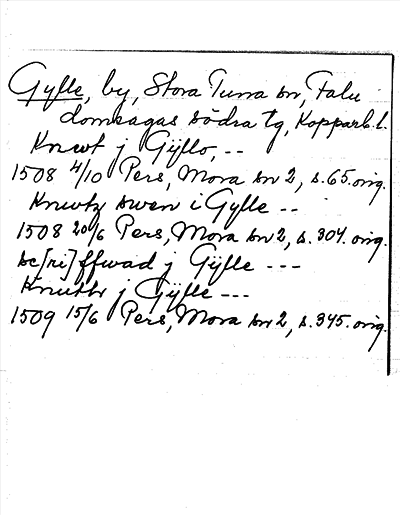 Gylle, by, Stora Tuna sn, Falu
domsagas södra tg, Kopparb. l.
Knwt j Gÿllo, --
1508 4/10 Pers, Mora sn 2, s. 65. orig.
Knwtz swen i Gylle --
1508 20/6 Pers, Mora sn 2, s. 307. orig.
sc[ri]ffwad j Gÿlle ---
Knuttz j Gÿlle ---
1509 15/6 Pers, Mora sn 2, s. 345. orig.